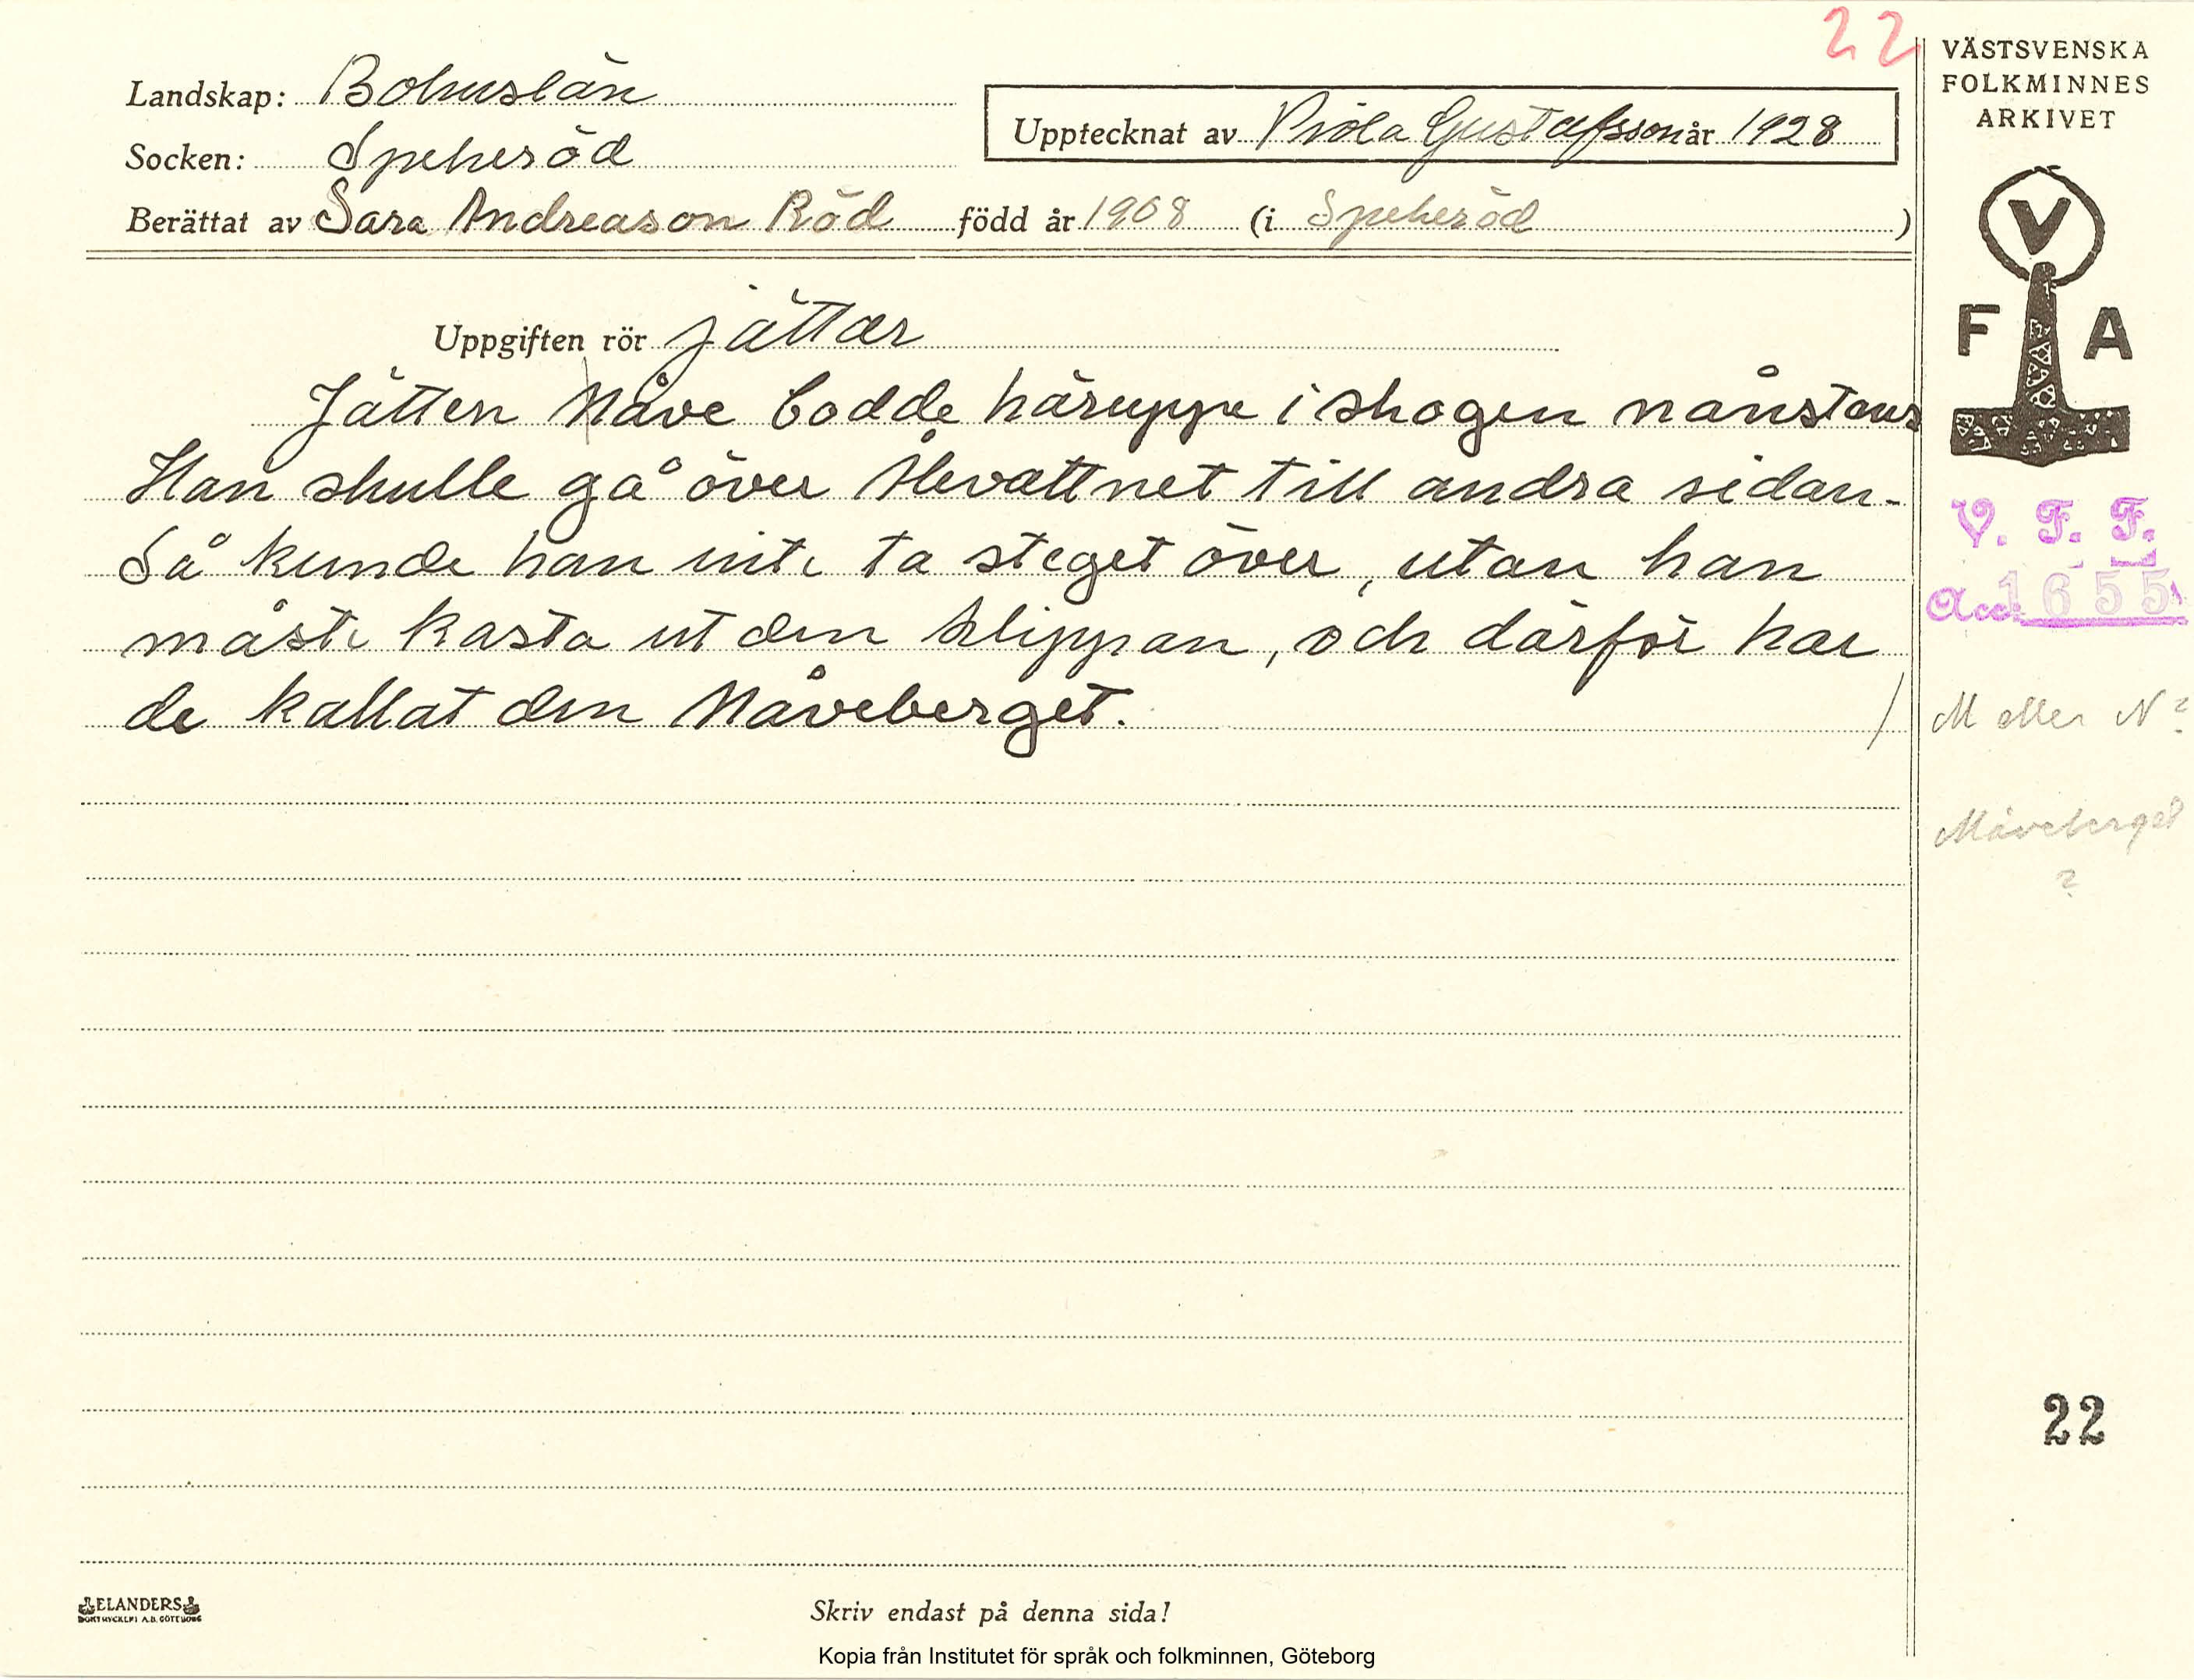 22
VÄSTSVENSKA
FOLKMINNES
ARKIVET
Landskap: Bohuslän
Upptecknat av Viola Gustafsson år 1928
Socken: Spekeröd
Berättat av Sara Andreason Röd född år 1908 (i Spekeröd)
V
F A
Uppgiften rör jättar
Jätten Måve bodde häruppe i skogen nånstans
Han skulle gå över Hevattnet till andra sidan.
Så kunde han inte ta steget över, utan han
måste kasta ut den klippan, och därför har
de kallat den Måveberget.
V. F. F.
Acc. 1655
M eller N?
Måveberget
?
22
ELANDERS
BOKTRYCKERI A.B. GÖTEBORG
Skriv endast på denna sida!
Kopia från Institutet för språk och folkminnen, Göteborg